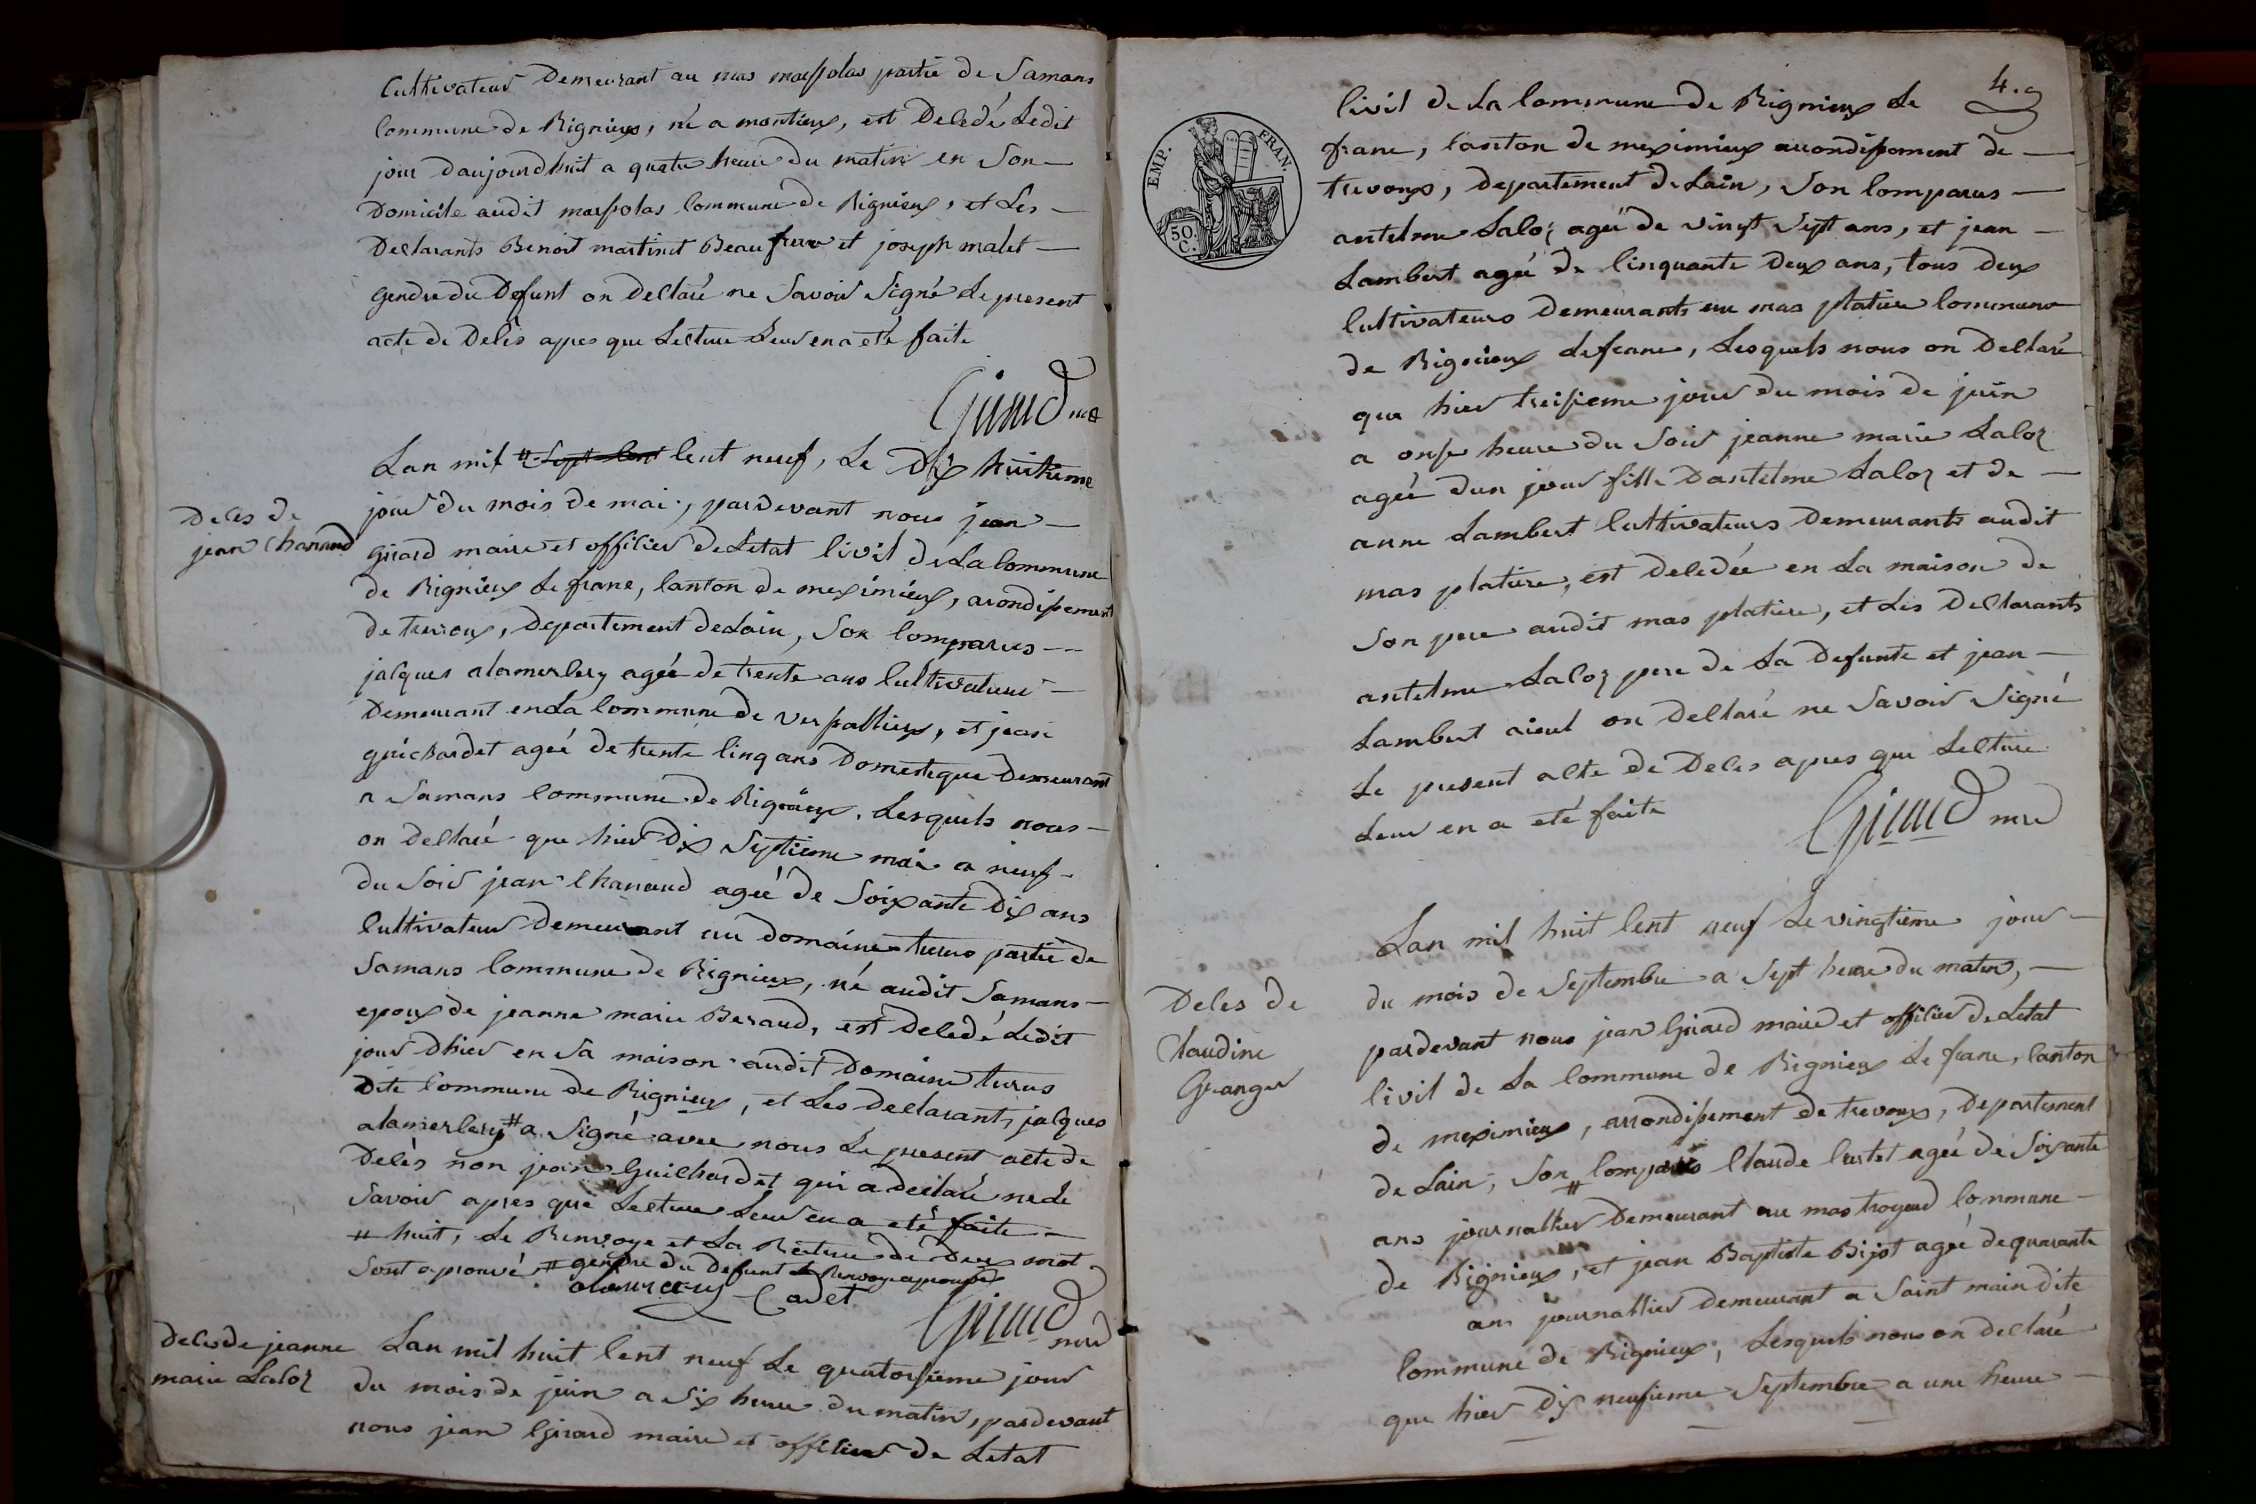 Cultivateur Demeurant au mas maspolas partie de Samans
Commune de Rignieux, né a montieux, est Decedé Ledit
jour Daujourdhuit a quatre heure du matin en Son
Domicile audit maspolas Commune de Rignieux, et Les
Declarants Benoit martinet Beau frere et joseph malet
gendre du Defunt on Declaré ne Savoir Signé Le present
acte de Décès apres que Lecture Leur en a eté faite
Girard
Lan mil # Sept Cent Cent neuf, Le Dix huitieme
Deces de
jean Chanaud
jour du mois de mai, pardevant nous jean
girard maire et officier De Letat Civil de La Commune
de Rignieux Le franc, Canton de meximieux, arondissement
de trevoux, Departement de Lain, Son Comparus
jacques alamercery ageé de trente ans Cultivateur
Demeurant en La Commune de versallieux, et jean
guichardet ageé de trente Cinq ans Domestique Demeurant
a Samans Commune de Rignieux, Lesquels nous
on declaré que hier Dix Septieme mai a neuf
du Soir jean Chanaud ageé de Soixante Dix ans
Cultivateur Demeurant au Domaine turus partie de
Samans Commune de Rignieux, né audit Samans
epoux de jeanne marie Beraud, est Decedé Ledit
jour Dhier en Sa maison audit Domaine turus
Dite Commune de Rignieux, et Les Declarants, jacques
alamercery # a Signé avec nous Le present acte de
Décès non jean Guichardet qui a declaré ne Le
Savoir apres que Lecture Leur en a eté faite
# huit, Le Renvoye et La Rature de Deux mot
Sont aprouvé # gendre du Defunt Renvoy aprouvé
Cadet
Girard
Deces de jeanne
marie Laloz
Lan mil huit Cent neuf Le quatorsieme jour
du mois de juin a Six heure du matin, pardevant
nous jean Girard maire et officier de Letat
4.
EMP. FRAN.
50.
C.
Civil de La Commune de Rignieux Le
franc, Canton de meximieux arrondissement de
trevoux, Departement de Lain, Son Comparus
antelme Laloz ageé de vingt Sept ans, et jean
Lambert ageé de Cinquante Deux ans, tous deux
Cultivateurs Demeurants au mas platiere Commune
de Rignieux Lefranc, Lesquels nous on Declaré
que hier treisieme jour du mois de juin
a onse heure du Soir jeanne marie Laloz
ageé dun jour fille Dantelme Laloz et de
anne Lambert Cultivateurs Demeurants audit
mas platiere, est decedée en La maison de
Son pere audit mas platiere, et Les Declarants
antelme Laloz pere de La Defunte et jean
Lambert aieul on Declaré ne Savoir Signé
Le present acte de Deces apres que Lecture
Leur en a eté faite
Girard
Deces de
Claudine
Granger
Lan mil huit Cent neuf Le vingtieme jour
du mois de Septembre a Sept heure du matin,
pardevant nous jean Girard maire et officier de Letat
Civil de La Commune de Rignieux Le franc, Canton
de meximieux, arrondissement de trevoux, Departement
de Lain, Son # Comparus Claude Curtet ageé de Soixante
ans journallier Demeurant au mas Commune
de Rignieux, et jean Baptiste Bijot ageé de quarante
ans journallier demeurant a Saint main dite
Commune de Rignieux, Lesquels nous on declaré
que hier Dix neufieme Septembre a une heure